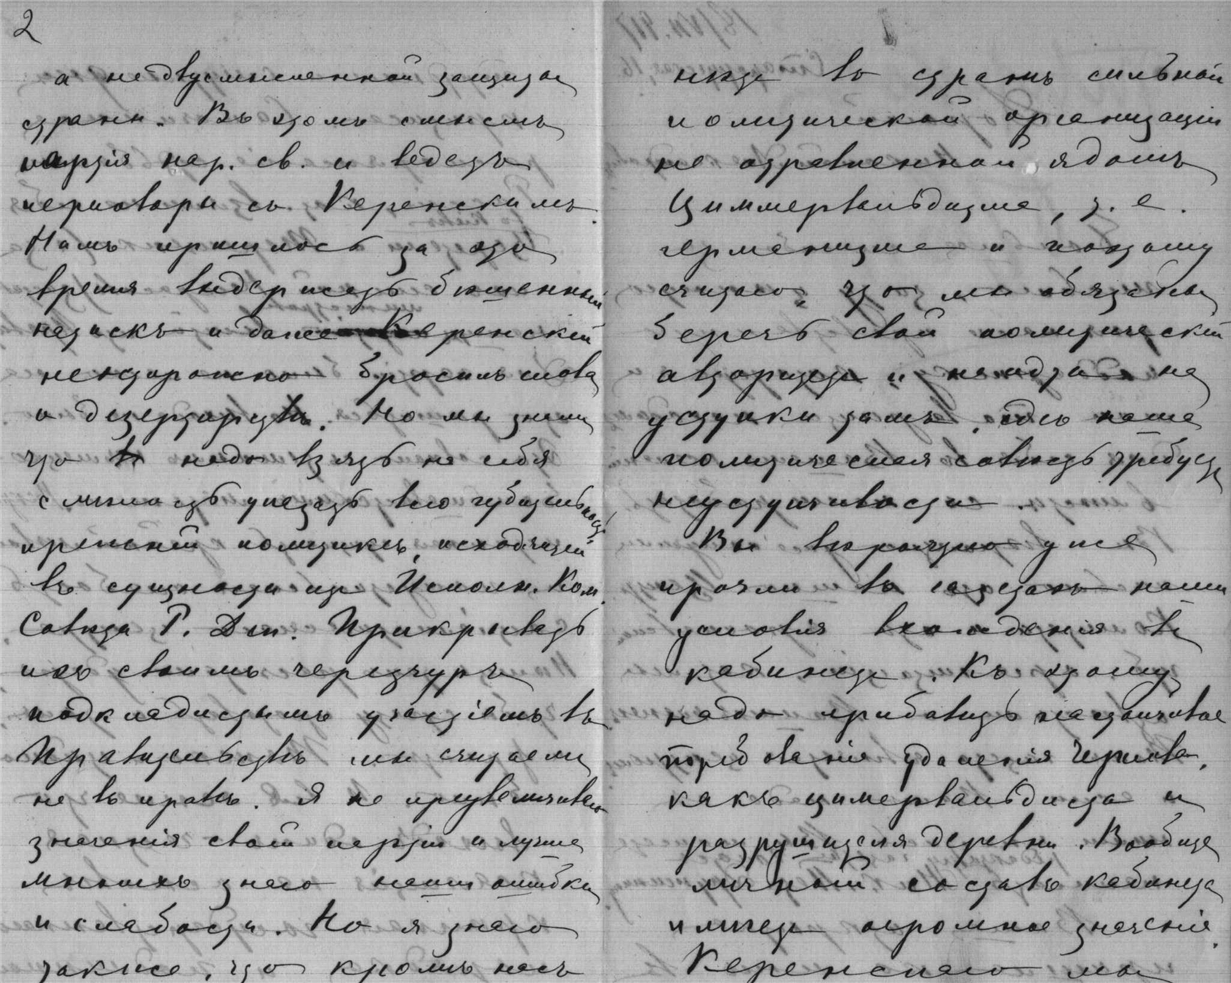 2
а недвусмысленной защиты
страны. Въ этомъ смыслѣ
партія нар. св. и ведетъ
переговоры съ Керенскимъ.
Намъ пришлось за это
время выдержать бѣшенный
натискъ и даже Керенскій
неосторожно бросилъ слова
о дезертирствѣ. Но мы знали
что надо взять на себя
смѣлость указать всю губительность
прежней политики, исходящей
въ сущности изъ Исполн. Ком.
Совѣта Р. Деп. Прикрывать
ихъ своимъ черезчуръ
покладистымъ участіемъ въ
Правительствѣ мы считаемъ
не въ правѣ. Я не преувеличиваю
значенія своей партіи и лучше
многихъ знаю наши ошибки
и слабости. Но я знаю
также, что кромѣ насъ
нѣтъ въ странѣ сильной
политической организаціи
не отравленной ядомъ
Циммервальдизма, т. е.
германизма и поэтому
считаю, что мы обязаны
беречь свой политическій
авторитетъ и не идти на
уступки тамъ, гдѣ наша
политическая совѣсть требуетъ
неуступчивости.
Вы вѣроятно уже
прочли въ газетахъ наши
условія вхожденія въ
кабинетъ. Къ этому
надо прибавить настойчивое
требованіе удаленія Чернова,
какъ цимервальдиста и
разрушителя деревни. Вообще
личный составъ кабинета
имѣетъ огромное значеніе.
Керенскаго мы